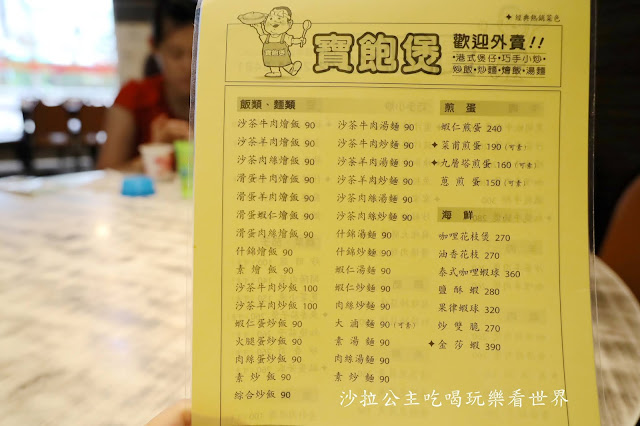 ✦經典熱銷菜色
寶飽煲
歡迎外賣!!
•港式煲仔•巧手小炒•
炒飯•炒麵•燴飯•湯麵
飯類、麵類
沙茶牛肉燴飯 90
沙茶羊肉燴飯 90
沙茶肉絲燴飯 90
滑蛋牛肉燴飯 90
滑蛋羊肉燴飯 90
滑蛋蝦仁燴飯 90
滑蛋肉絲燴飯 90
什錦燴飯 90
素燴飯 90
沙茶牛肉炒飯 100
沙茶羊肉炒飯 100
蝦仁蛋炒飯 90
火腿蛋炒飯 90
肉絲蛋炒飯 90
素炒飯 90
綜合炒飯 90
沙茶牛肉湯麵 90
沙茶牛肉炒麵 90
沙茶羊肉湯麵 90
沙茶羊肉炒麵 90
沙茶肉絲湯麵 90
沙茶肉絲炒麵 90
什錦湯麵 90
什錦炒麵 90
蝦仁湯麵 90
蝦仁炒麵 90
肉絲炒麵 90
大滷麵 90(可素)
素湯麵 90
肉絲湯麵 90
素炒麵 90
煎蛋
蝦仁煎蛋 240
✦菜甫煎蛋 190(可素)
✦九層塔煎蛋 160(可素)
蔥煎蛋 150(可素)
海鮮
咖哩花枝煲 270
油香花枝 270
泰式咖哩蝦球 360
鹽酥蝦 280
果律蝦球 320
炒雙脆 270
✦金莎蝦 390
沙拉公主吃喝玩樂看世界